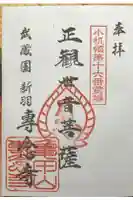 奉拝
小机領第十六番霊場
正観世音菩薩
武蔵國新羽
專念寺